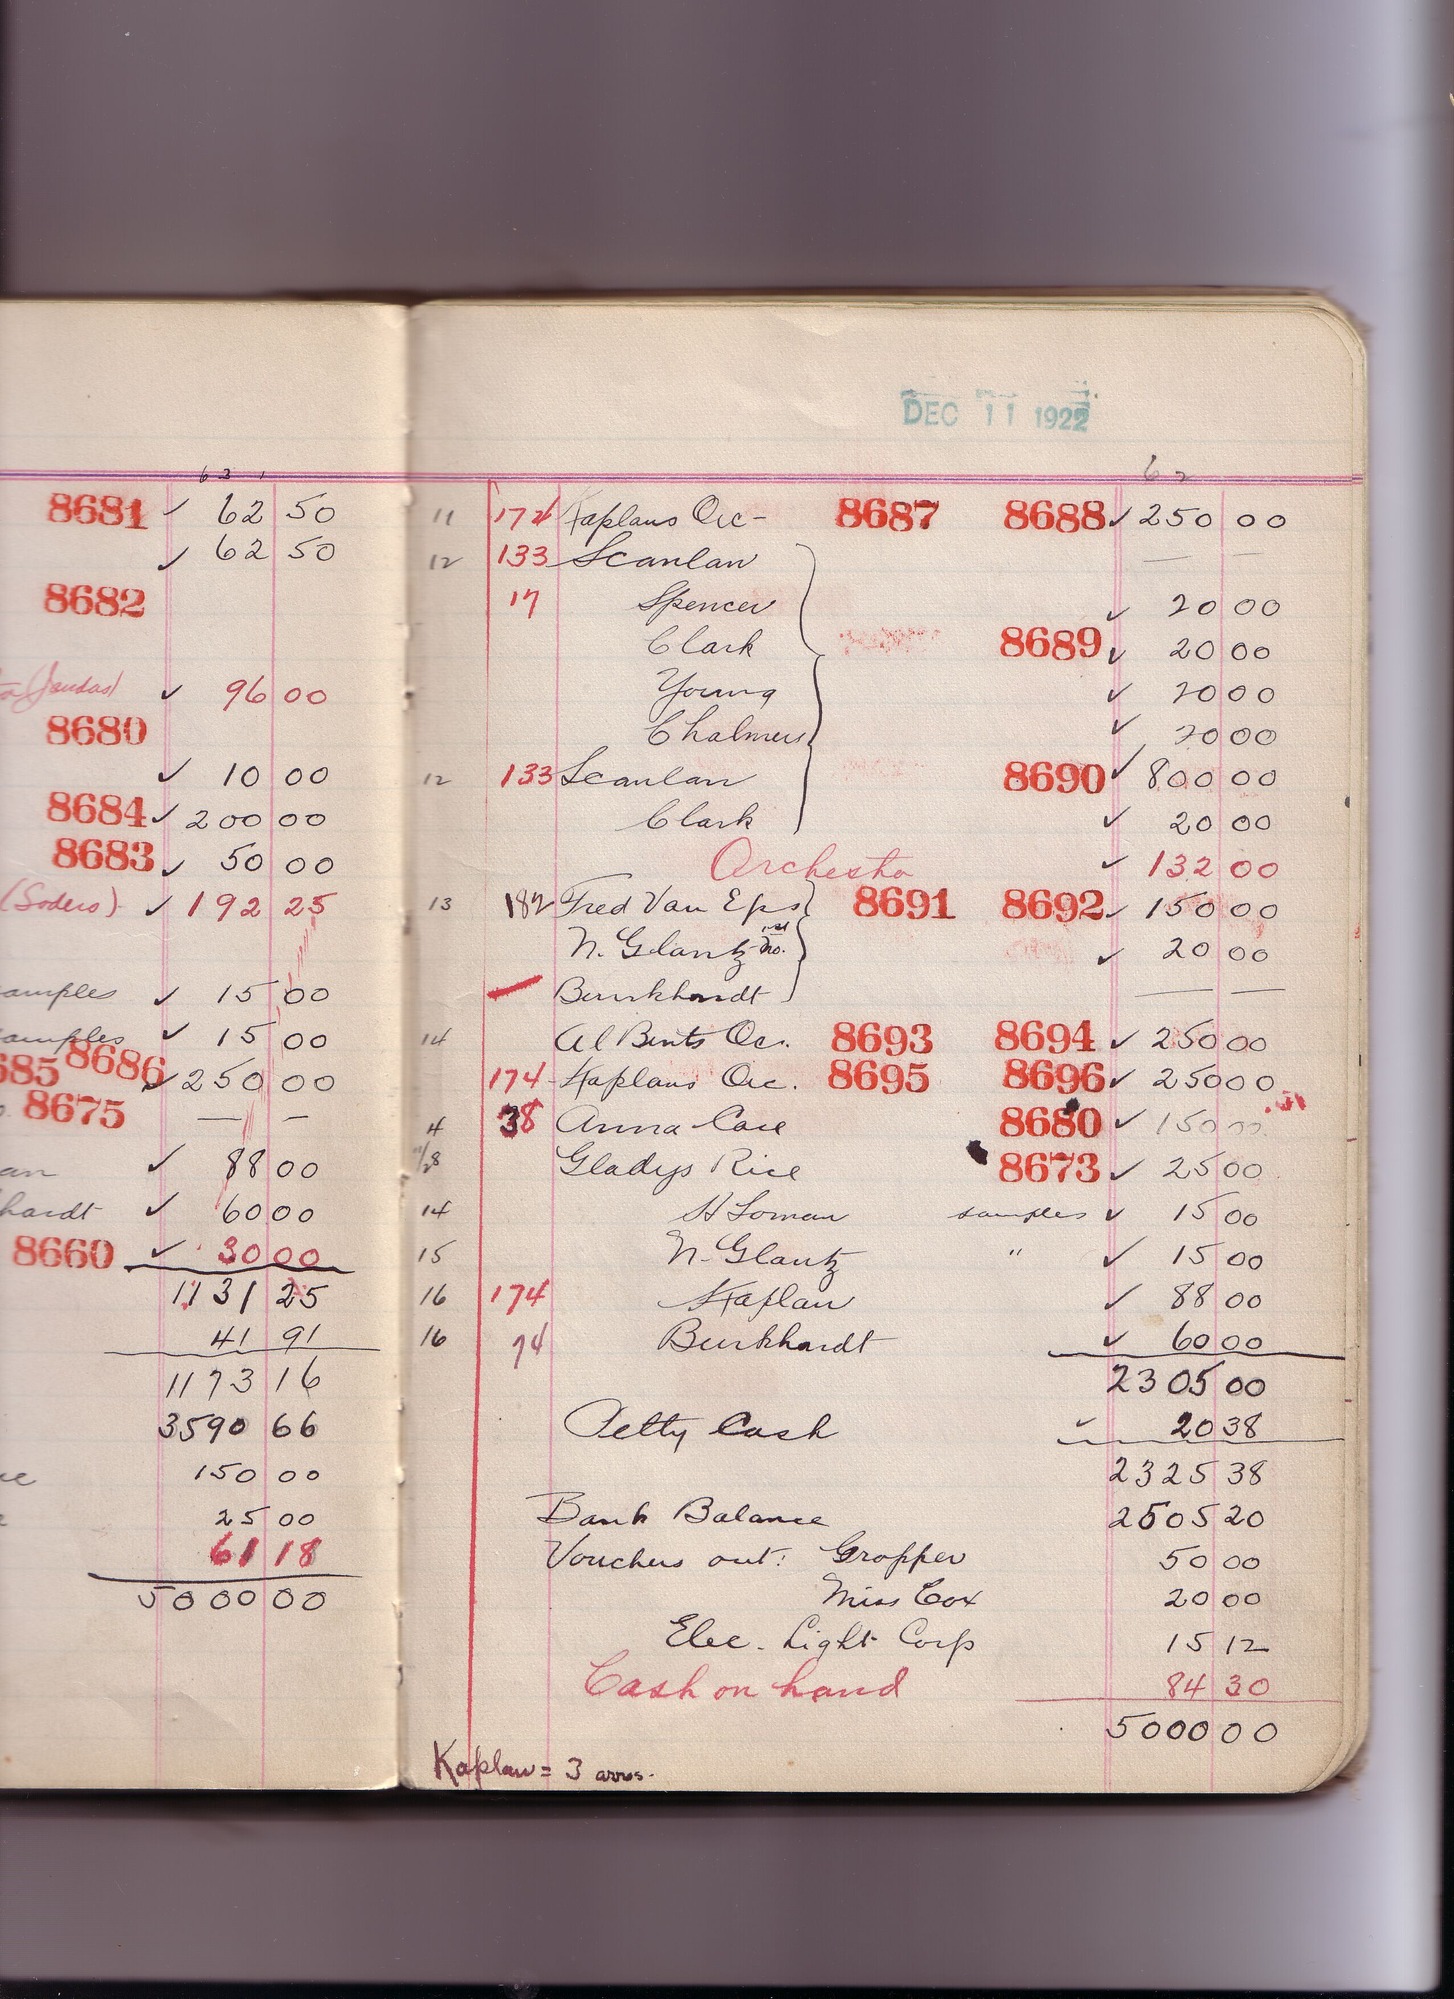 6 3 1
8681 ✓ 62 50
✓ 62 50
8682
✓ 96 00
8680
✓ 10 00
8684 ✓ 200 00
8683 ✓ 50 00
(Soders) ✓ 192 25
amples ✓ 15 00
amples ✓ 15 00
685 8686 ✓ 250 00
8675 — —
an ✓ 88 00
hardt ✓ 60 00
8660 ✓ 30 00
1131 25
41 91
1173 16
3590 66
150 00
25 00
61 18
5000 00
DEC 11 1922
6 2
11 172 Kaplans Orc- 8687 8688 ✓ 250 00
12 133 Scanlan — —
17 Spencer ✓ 20 00
Clark 8689 ✓ 20 00
Young ✓ 20 00
Chalmers ✓ 20 00
12 133 Scanlan 8690 ✓ 800 00
Clark ✓ 20 00
Orchestra ✓ 132 00
13 182 Fred Van Eps 8691 8692 ✓ 150 00
N. Glantz ✓ 20 00
Burkhardt — —
14 Al Bents Oc. 8693 8694 ✓ 250 00
174 Kaplans Orc. 8695 8696 ✓ 250 00
4 38 Anna Case 8680 ✓ 150 00
11/28 Gladys Rice 8673 ✓ 25 00
14 H Loman samples ✓ 15 00
15 N. Glantz " ✓ 15 00
16 174 Kaplan ✓ 88 00
16 74 Burkhardt ✓ 60 00
2305 00
Petty Cash ✓ 20 38
2325 38
Bank Balance 2505 20
Vouchers out: Gropper 50 00
Miss Cox 20 00
Elec. Light Corp 15 12
Cash on hand 84 30
5000 00
Kaplan = 3 arrs.